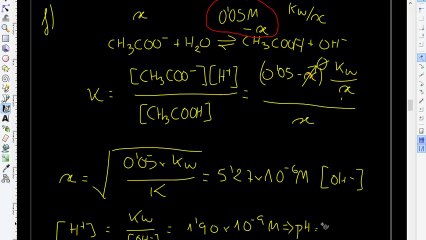 f) x 0'05M - x Kw/x
CH₃COO⁻ + H₂O ⇌ CH₃COOH + OH⁻
K = [CH₃COO⁻][H⁺] / [CH₃COOH] = (0'05 - x)⁰ Kw/x / x
x = √(0'05 × Kw / K) = 5'27 × 10⁻⁶ M [OH⁻]
[H⁺] = Kw / [OH⁻] = 1'90 × 10⁻⁹ M ⇒ pH =